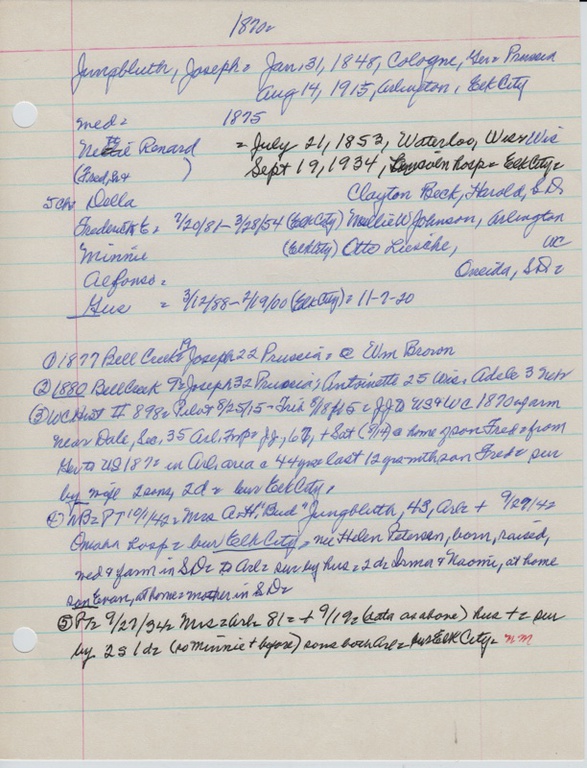 1870=
Jungbluth, Joseph = Jan. 31, 1848, Cologne, Ger = Prussia
Aug 14, 1915, Arlington, Elk City
med = 1875
Nettie Renard = July 21, 1853, Waterloo, Wis = Wis
(Fred, Sr + ) Sept 19, 1934, Lincoln hosp = Elk City =
Della Clayton Beck, Harold, S.D. =
Frederick E = 7/20/81 - 3/28/54 (Elk City) Nellie W Johnson, Arlington
Minnie (Elk City) Otto Liesche, WC
Alfonso = Oneida, S.D. =
Gus = 3/12/88 - 2/19/00 (Elk City) = 11-7-20
① 1877 Bell Creek = Joseph 22 Prussia = @ Wm Brown
② 1880 Bell Creek = Joseph 32 Prussia; Antoinette 25 Wis, Adele 3 Nebr
③ WC Hist II 898 = Pilot 8/25/15 - Trib = JJ to US & WC 1870 = farm
near Dale, Sec. 35 Arl. Twp = JJ, 67, + Sat (8/14) @ home of son Fred = from
Ger to US 1870 in Arl. area = 44 yrs = last 12 yrs with son Fred = sur
by wife 2 sons, 2 d = bur Elk City.
④ NB = PT 10/1/42 = Mrs A.H. "Bud" Jungbluth, 43, Arl = + 9/29/42
Omaha hosp = bur Elk City = nee Helen Petersen, born, raised,
med & farm in S.D. = to Arl = sur by hus = 2 d = Irma & Naomi, at home
son Evan, at home = mother in S.D. =
⑤ PT = 9/27/34 = Mrs = Arl = 81 = + 9/19 = (data as above) hus + = sur
by 2 s 1 d = (so Minnie + before) sons both Arl = bur Elk City = nm